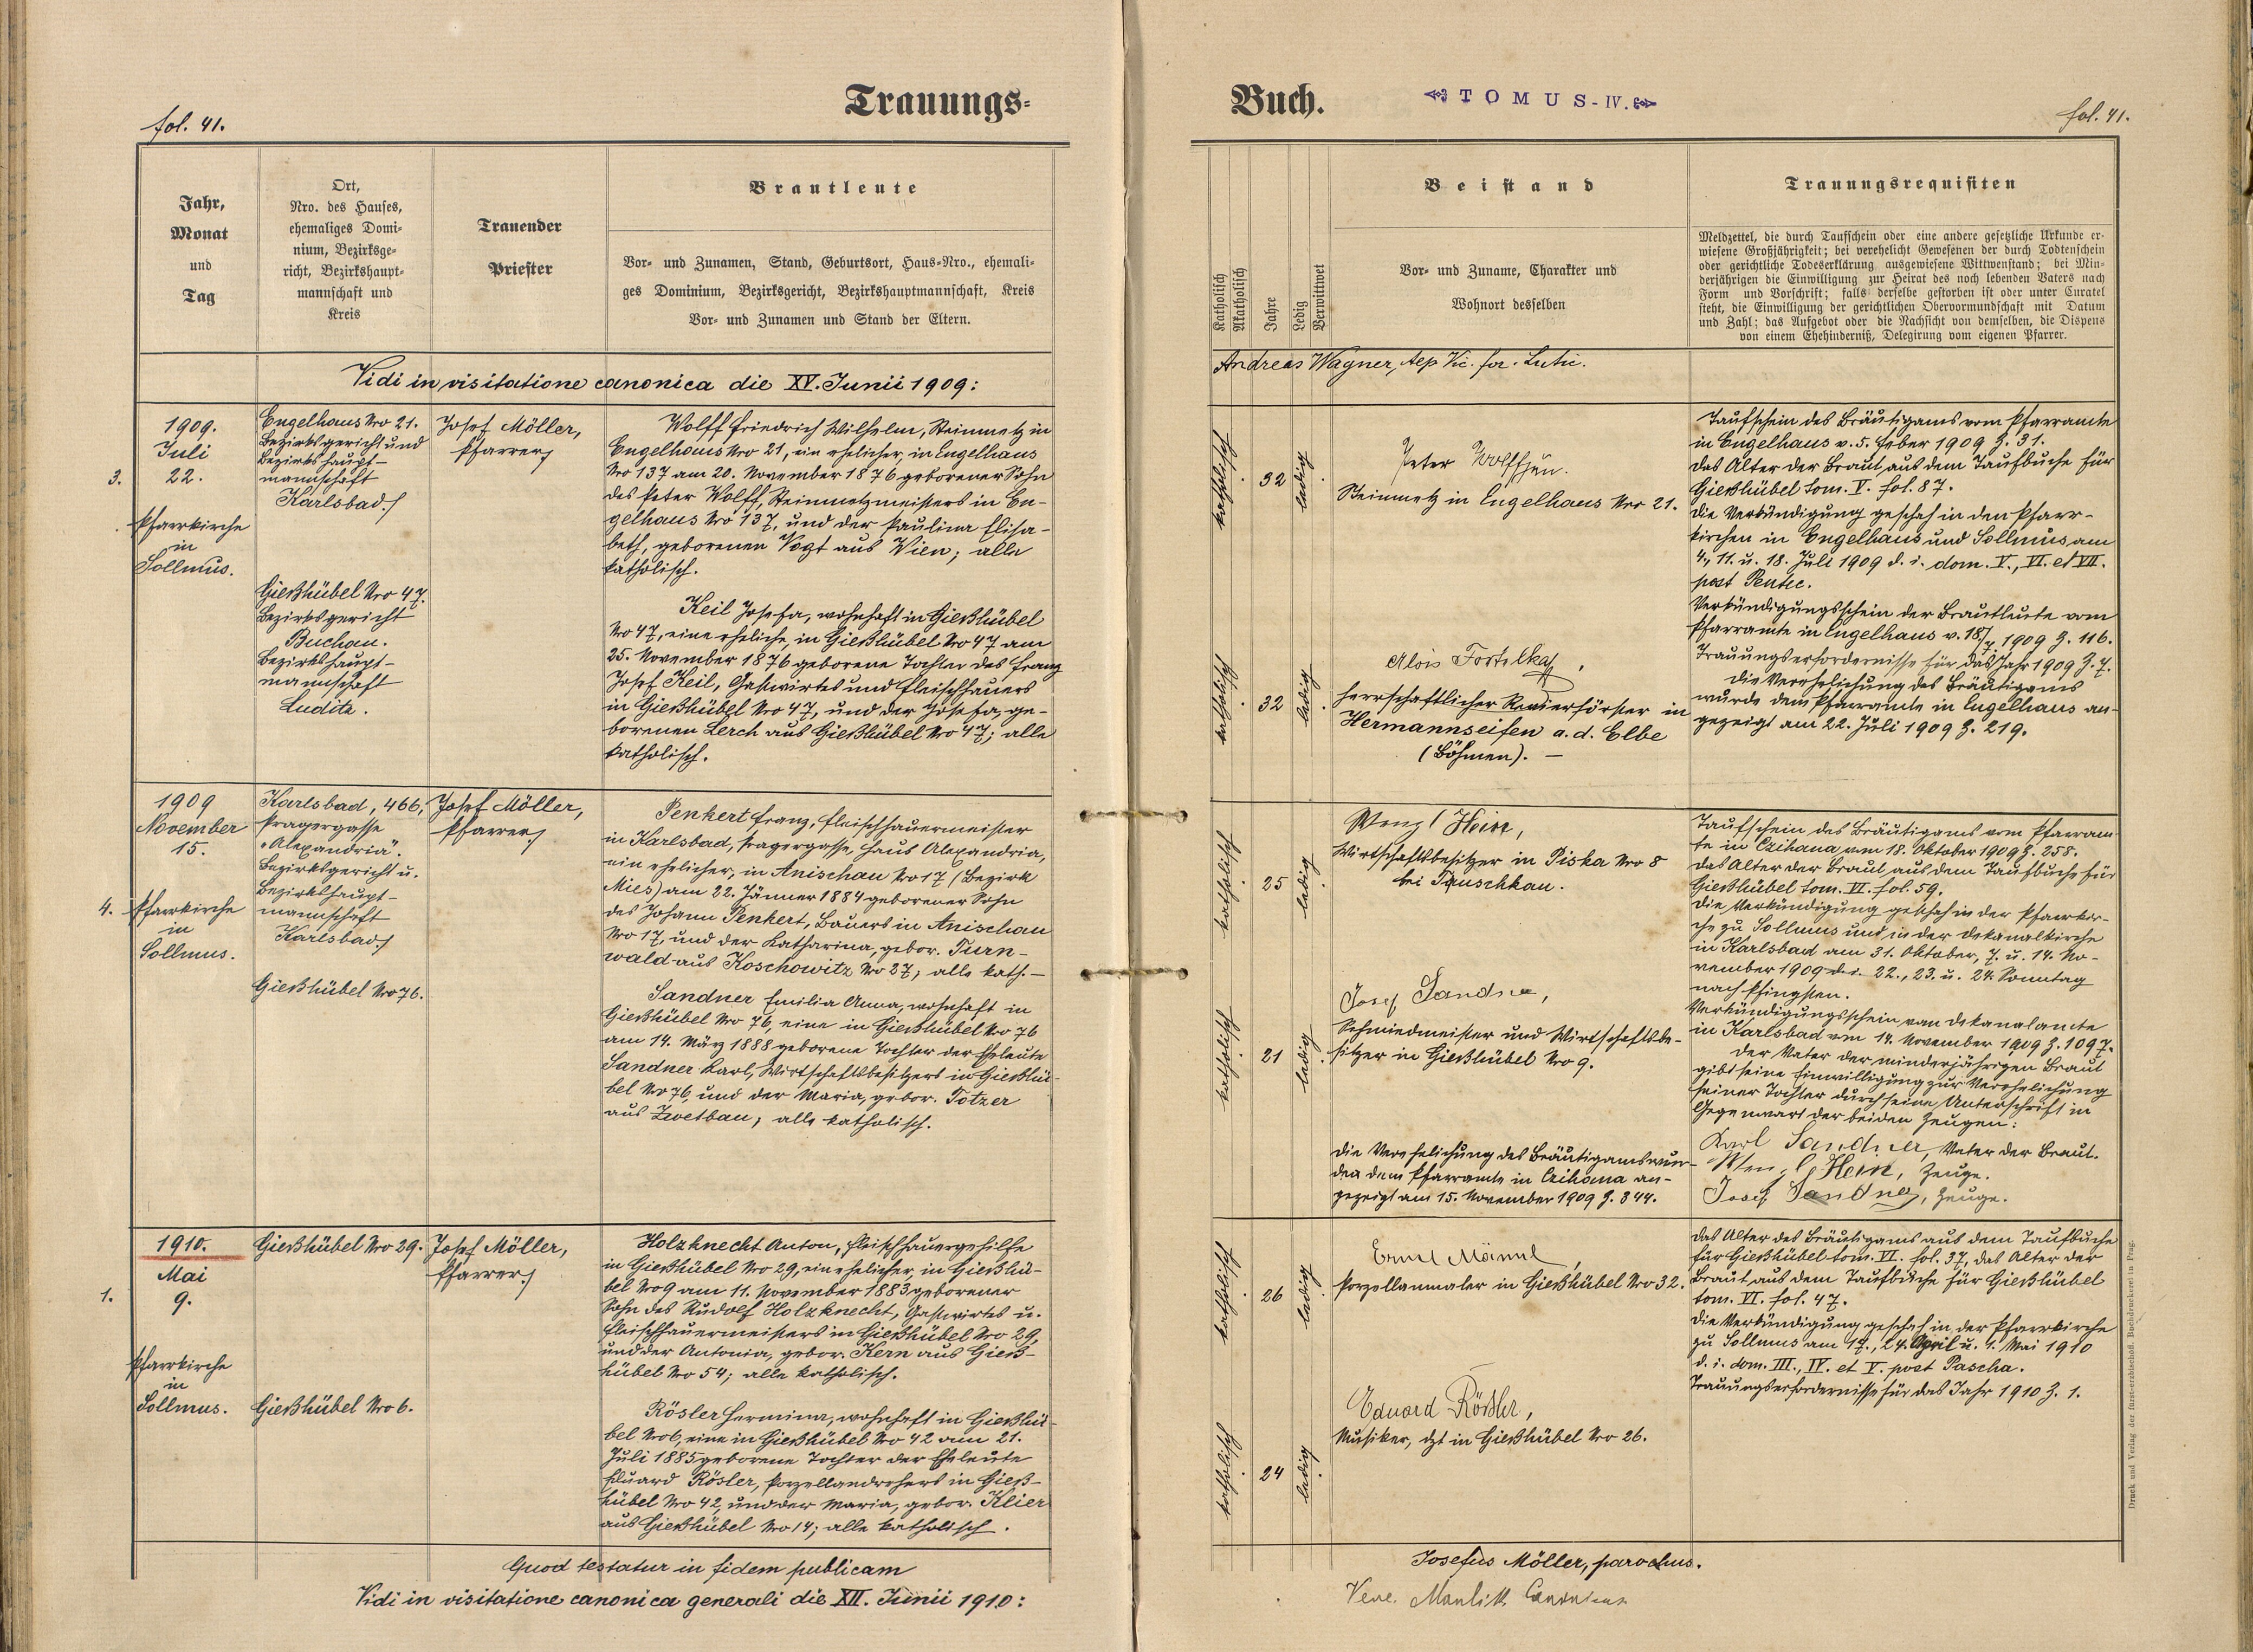 fol. 41.
Trauungs-
Jahr,
Monat
und
Tag
Ort,
Nro. des Hauses,
ehemaliges Domi-
nium, Bezirksge-
richt, Bezirkshaupt-
mannschaft und
Kreis
Trauender
Priester
Brautleute
Vor- und Zunamen, Stand, Geburtsort, Haus-Nro., ehemali-
ges Dominium, Bezirksgericht, Bezirkshauptmannschaft, Kreis
Vor- und Zunamen und Stand der Eltern.
Vidi in visitatione canonica die XV. Junii 1909:
3.
1909.
Juli
22.
Pfarrkirche
in
Sollmus.
Engelhaus Nro 21.
Bezirksgericht und
Bezirkshaupt-
mannschaft
Karlsbad.
Gießhübel Nro 47.
Bezirksgericht
Buchau.
Bezirkshaupt-
mannschaft
Luditz.
Josef Möller,
Pfarrer
Wolff Friedrich Wilhelm, Steinmetz in
Engelhaus Nro 21, ein ehelicher, in Engelhaus
Nro 137 am 20. November 1876 geborener Sohn
des Peter Wolff, Steinmetzmeisters in En-
gelhaus Nro 137, und der Paulina Elisa-
beth, geborenen Vogt aus Wien; alle
katholisch.
Keil Josefa, wohnhaft in Gießhübel
Nro 47, eine eheliche, in Gießhübel Nro 47 am
25. November 1876 geborene Tochter des Franz
Josef Keil, Gastwirtes und Fleischhauers
in Gießhübel Nro 47, und der Josefa, ge-
borenen Lerch aus Gießhübel Nro 47; alle
katholisch.
4.
1909
November
15.
Pfarrkirche
in
Sollmus.
Karlsbad, 466,
Pragergasse
"Alexandria".
Bezirksgericht u.
Bezirkshaupt-
mannschaft
Karlsbad
Gießhübel Nro 76.
Josef Möller,
Pfarrer
Penkert Franz, Fleischhauermeister
in Karlsbad, Pragergasse, Haus Alexandria,
ein ehelicher, in Anischau Nro 17 (Bezirk
Mies) am 22. Jänner 1884 geborener Sohn
des Johann Penkert, Bauers in Anischau
Nro 17, und der Katharina, gebor. Turn-
wald aus Koschowitz Nro 27; alle kath. -
Sandner Emilia Anna, wohnhaft in
Gießhübel Nro 76, eine in Gießhübel Nro 76
am 14. März 1888 geborene Tochter der Eheleute
Sandner Karl, Wirtschaftsbesitzers in Gießhü-
bel Nro 76, und der Maria, gebor. Totzer
aus Zwetbau; alle katholisch.
1.
1910.
Mai
9.
Pfarrkirche
in
Sollmus.
Gießhübel Nro 29.
Gießhübel Nro 6.
Josef Möller,
Pfarrer
Holzknecht Anton, Fleischhauergehilfe
in Gießhübel Nro 29, ein ehelicher, in Gießhü-
bel Nro 9 am 11. November 1883 geborener
Sohn des Rudolf Holzknecht, Gastwirtes u.
Fleischhauermeisters in Gießhübel Nro 29,
und der Antonia, gebor. Kern aus Gieß-
hübel Nro 54; alle katholisch.
Rösler Hermina, wohnhaft in Gießhü-
bel Nro 6, eine in Gießhübel Nro 42 am 21.
Juli 1885 geborene Tochter der Eheleute
Eduard Rösler, Porzellandrehers in Gieß-
hübel Nro 42, und der Maria, gebor. Klier
aus Gießhübel Nro 14; alle katholisch.
Quod testatur in fidem publicam
Vidi in visitatione canonica generali die XII. Junii 1910:
Buch.
TOMUS-IV.
fol. 41.
Katholisch
Akatholisch
Jahre
Ledig
Verwittwet
Beistand
Vor- und Zuname, Charakter und
Wohnort desselben
Trauungsrequisiten
Meldzettel, die durch Taufschein oder eine andere gesetzliche Urkunde er-
wiesene Großjährigkeit; bei verehelicht Gewesenen der durch Todtenschein
oder gerichtliche Todeserklärung ausgewiesene Wittwenstand; bei Min-
derjährigen die Einwilligung zur Heirat des noch lebenden Vaters nach
Form und Vorschrift; falls derselbe gestorben ist oder unter Curatel
steht, die Einwilligung der gerichtlichen Obervormundschaft mit Datum
und Zahl; das Aufgebot oder die Nachsicht von demselben, die Dispens
von einem Ehehinderniß, Delegirung vom eigenen Pfarrer.
Andreas Wagner, Aep. Vic. for. Lutic.
katholisch
32
ledig
Peter Wolff jun.
Steinmetz in Engelhaus Nro 21.
katholisch
32
ledig
Alois
herrschaftlicher Revierförster in
Hermannseifen a. d. Elbe
(Böhmen). -
Taufschein des Bräutigams vom Pfarramte
in Engelhaus v. 5. Feber 1909 Z. 31.
Das Alter der Braut aus dem Taufbuche für
Gießhübel tom. V. fol. 87.
Die Verkündigung geschah in den Pfarr-
kirchen in Engelhaus und Sollmus am
4., 11. u. 18. Juli 1909 d. i. dom. V., VI. et VII.
post Pentec.
Verkündigungsschein der Brautleute vom
Pfarramte in Engelhaus v. 18/7 1909 Z. 116.
Trauungserfordernisse für das Jahr 1909 Z. 7.
Die Verehelichung des Bräutigams
wurde dem Pfarramte in Engelhaus an-
gezeigt am 22. Juli 1909 Z. 219.
katholisch
25
ledig
Wenzl Hein,
Wirtschaftsbesitzer in Piska Nro 8
bei Tuschkau.
katholisch
21
ledig
Josef Sandner,
Schmiedmeister und Wirtschaftsbe-
sitzer in Gießhübel Nro 9.
Die Verehelichung des Bräutigams wur-
de dem Pfarramte in Czihana an-
gezeigt am 15. November 1909 Z. 344.
Taufschein des Bräutigams vom Pfarram-
te in Czihana vom 18. Oktober 1909 Z. 258.
Das Alter der Braut aus dem Taufbuche für
Gießhübel tom. VI. fol. 59.
Die Verkündigung geschah in der Pfarrkir-
che zu Sollmus und in der Dekanalkirche
in Karlsbad am 31. Oktober, 7. u. 14. No-
vember 1909 d. i. 22., 23. u. 24. Sonntag
nach Pfingsten.
Verkündigungsschein vom Dekanalamte
in Karlsbad vom 14. November 1909 Z. 1097.
Der Vater der minderjährigen Braut
gibt seine Einwilligung zur Verehelichung
seiner Tochter durch seine Unterschrift in
Gegenwart der beiden Zeugen:
Karl Sandner, Vater der Braut.
Wenzl Hein, Zeuge.
Josef Sandner, Zeuge.
katholisch
26
ledig
Ernst
Porzellanmaler in Gießhübel Nro 32.
katholisch
24
ledig
Eduard Rößler,
Musiker, dzt in Gießhübel Nro 26.
Das Alter des Bräutigams aus dem Taufbuche
für Gießhübel tom. VI. fol. 37, das Alter der
Braut aus dem Taufbuche für Gießhübel
tom. VI. fol. 47.
Die Verkündigung geschah in der Pfarrkirche
zu Sollmus am 17., 24. April u. 1. Mai 1910
d. i. dom. III., IV. et V. post Pascha.
Trauungserfordernisse für das Jahr 1910 Z. 1.
Josefus Möller, parochus.
Canonicus
Druck und Verlag der fürsterzbischöfl. Buchdruckerei in Prag.